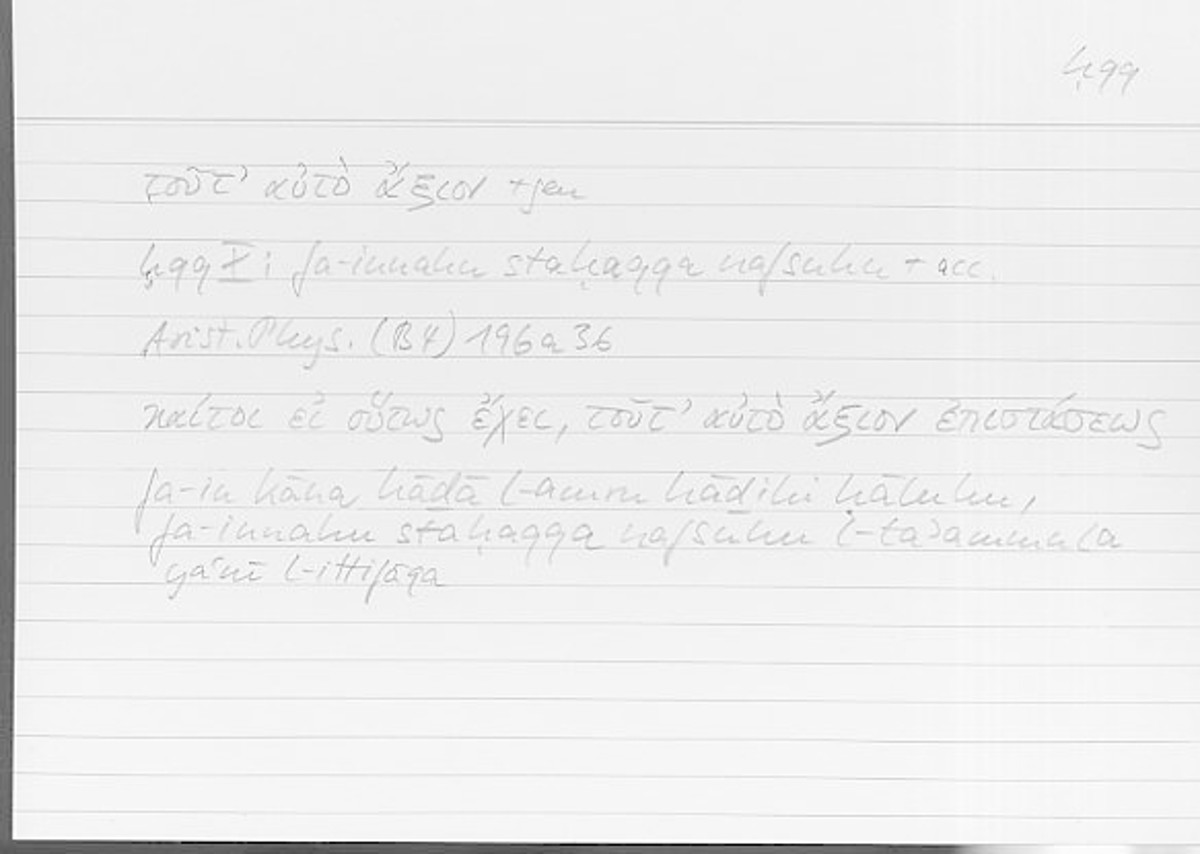 ḥqq
τοῦτ’ αὐτὸ ἄξιον + gen
ḥqq X: fa-innahu staḥaqqa nafsuhu + acc.
Arist. Phys. (B4) 196a36
καίτοι εἰ οὕτως ἔχει, τοῦτ’ αὐτὸ ἄξιον ἐπιστάσεως
fa-in kāna hāḏā l-amru hāḏihi ḥāluhu,
fa-innahu staḥaqqa nafsuhu l-taʾammula
yaʿnī l-ittifāqa